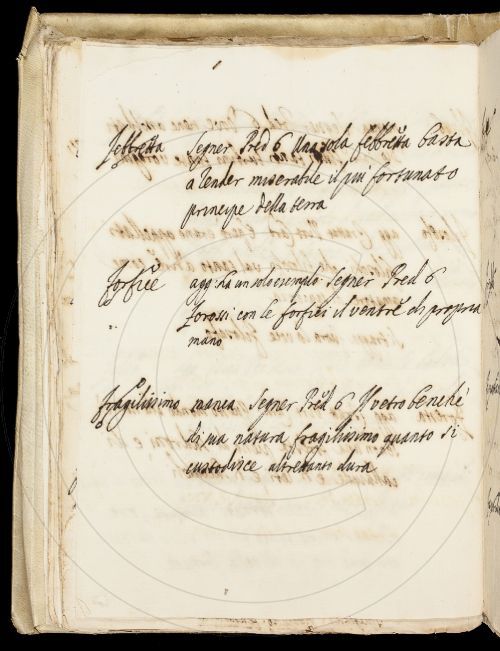 Febbretta Segner Pred 6 Una sola febbretta basta
a render miserabile il piu fortunato
principe della terra
Forfice agg: ha un solo esempio Segner Pred 6
Forossi con le forfici il ventre di propria
mano
fragilissimo manca Segner Pred 6 Il vetro benche
di sua natura fragilissimo quanto si
custodisce altrettanto dura